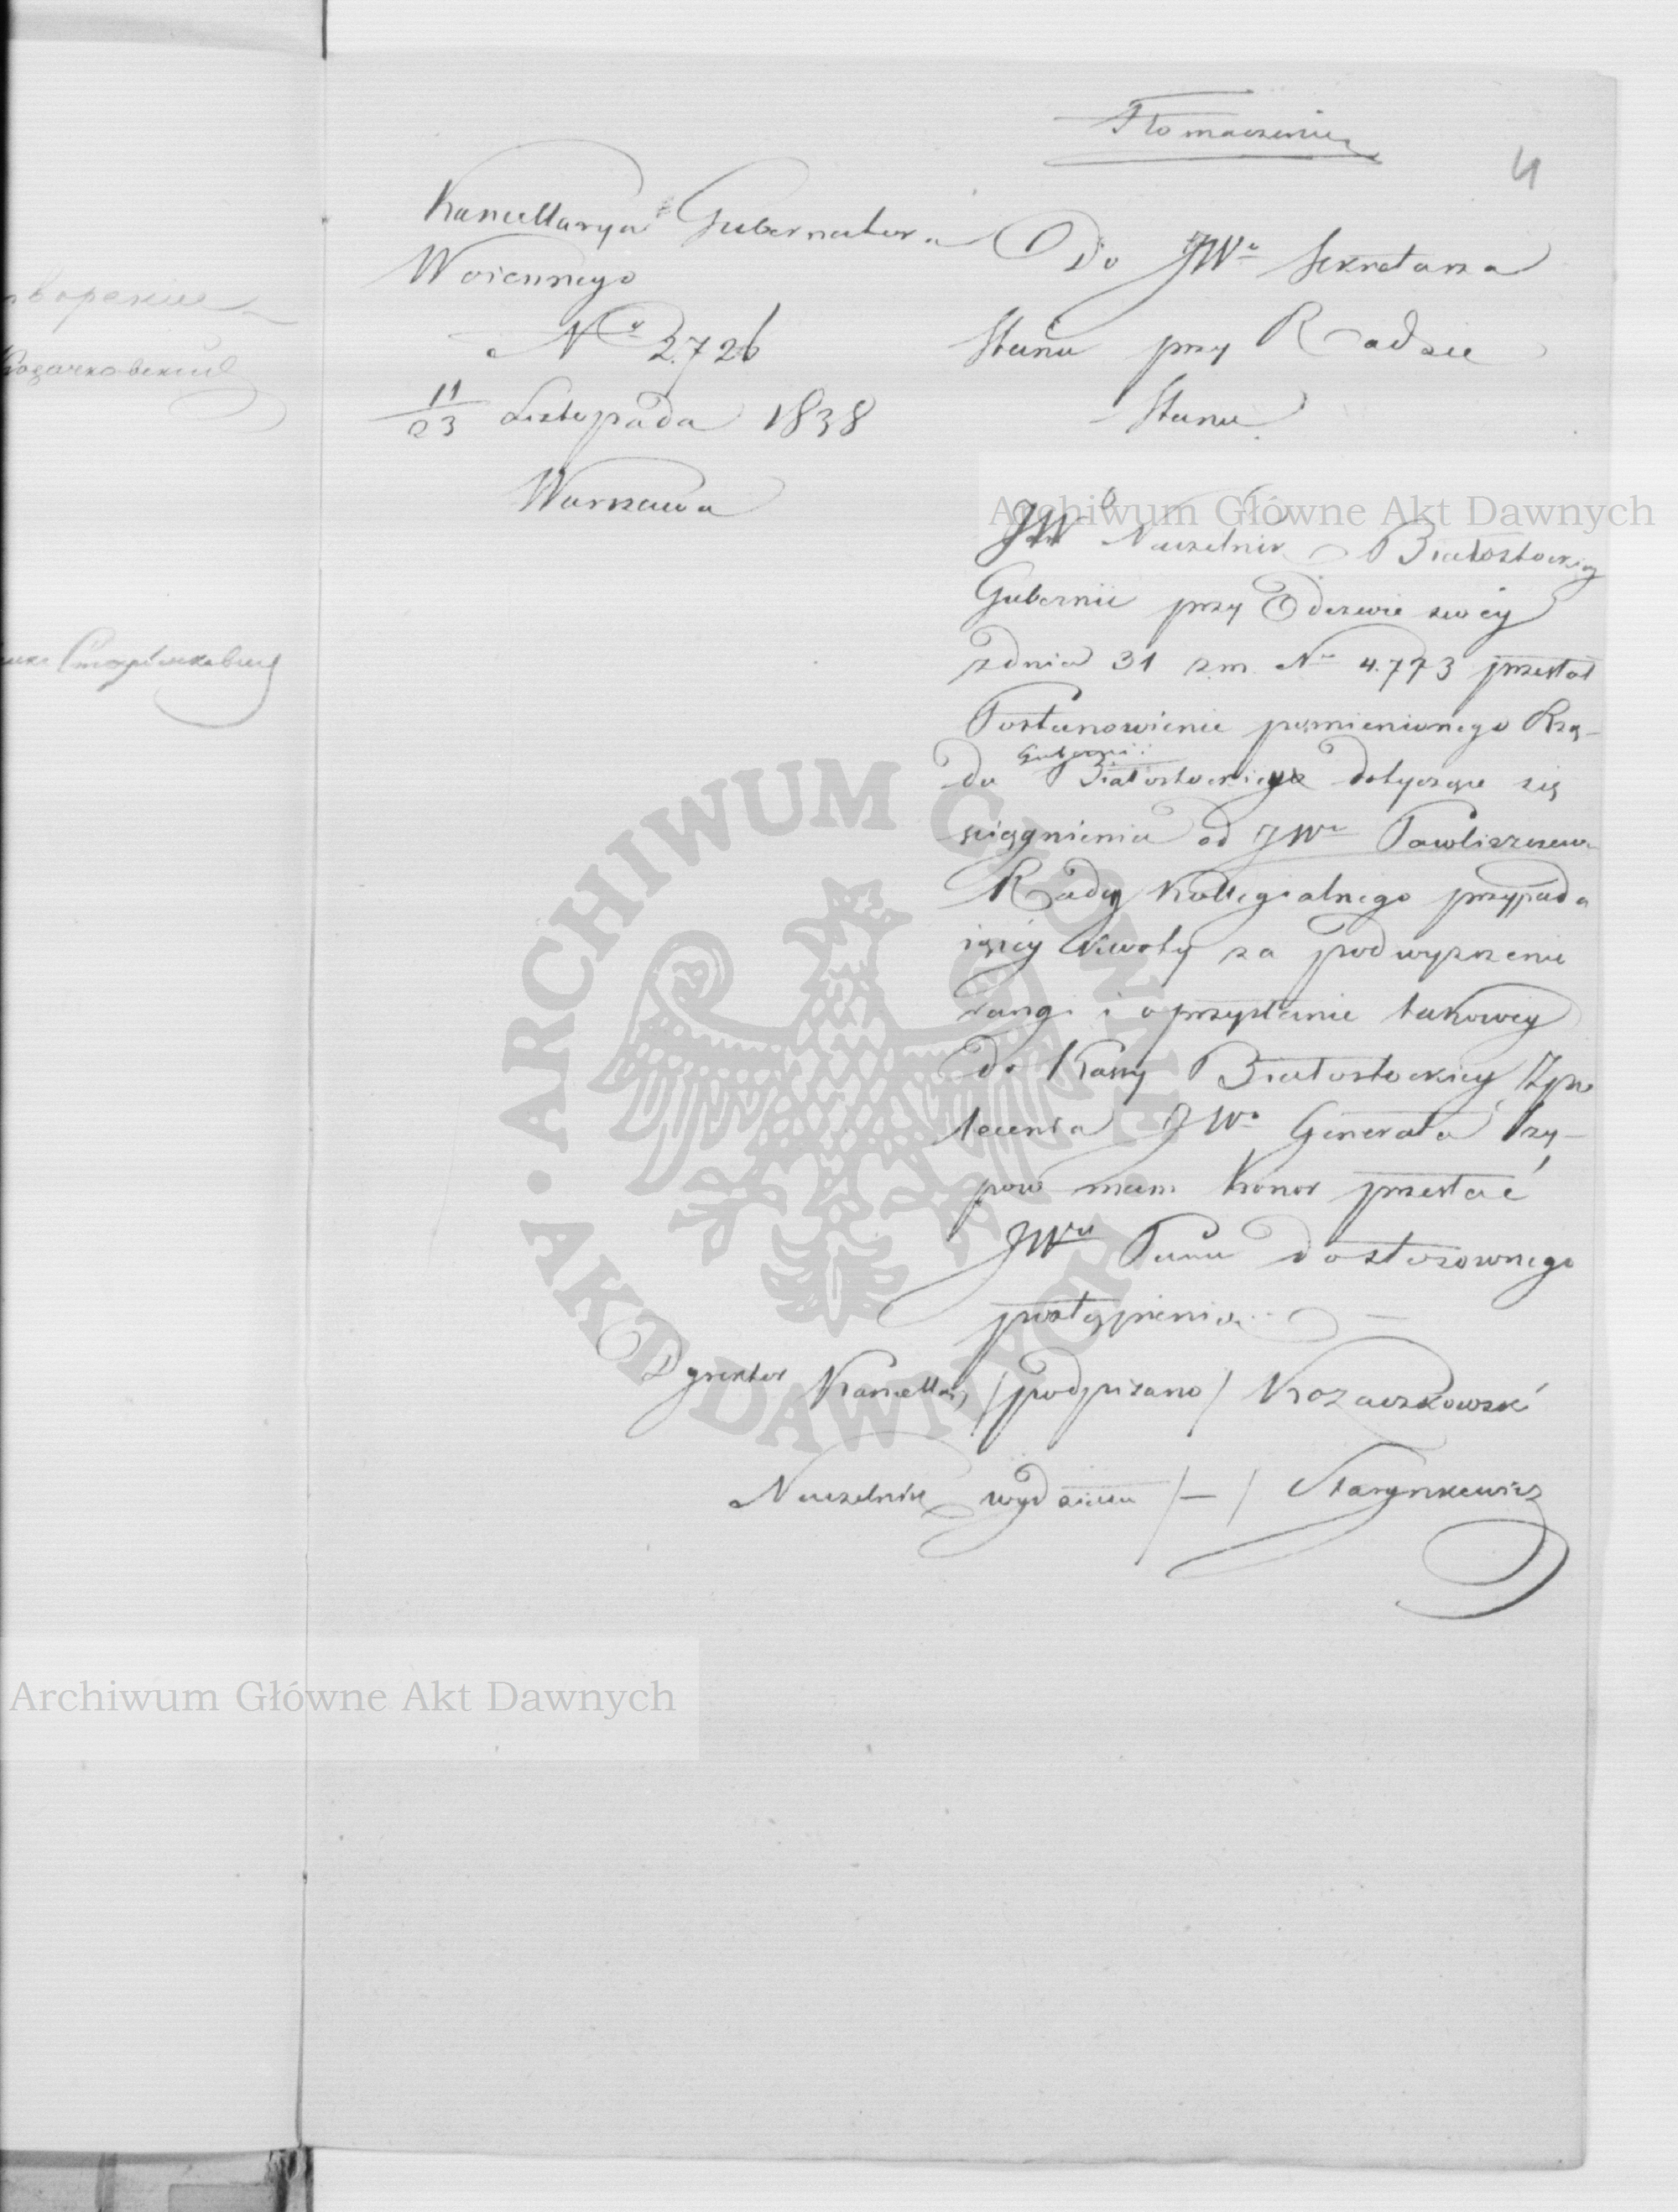 Tłomaczenie
4
Kancellarya Gubernatora
Woiennego
No 2726
11/23 Listopada 1838
Warszawa
Do JWo Sekretarza
Stanu przy Radzie
Stanu
JWo Naczelnik Białostockiey
Gubernii przy Odezwie swoiey
z dnia 31 z.m. No 4.773 przesłał
Postanowienie pomienionego Rzą-
du Gubernii Białostockiey dotyczące się
ściągnienia od JWo Pawliszczewa
Radcy Kollegialnego przypada
iącey kwoty za podwyższenie
rangi i o przysłanie takowey
do Kassy Białostockiey, Z po
lecenia JWo Generała Szy-
pow mam honor przesłać
JWu Panu do stosownego
postąpienia.
Dyrektor Kancellaryi /podpisano/ Kozaczkowski
Naczelnik wydziału /—/ Starynkewicz
Archiwum Główne Akt Dawnych
ARCHIWUM GŁÓWNE • AKT DAWNYCH •
Archiwum Główne Akt Dawnych